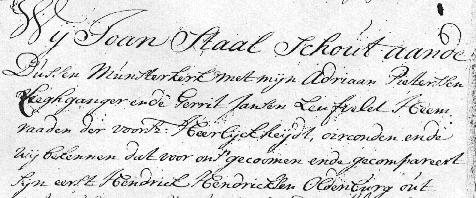 Wij Joan Staal Schout aande
Dussen Munsterkerk met mijn Adriaan Pieterssen
Weghganger ende Gerrit Jansen Heem
raden der voorsz: Heerlijckheijdt, oirconden ende
wij bekennen dat voor ons gecoomen ende gecompareert
sijn eerst Hendrick Hendricksen Oldenburg out